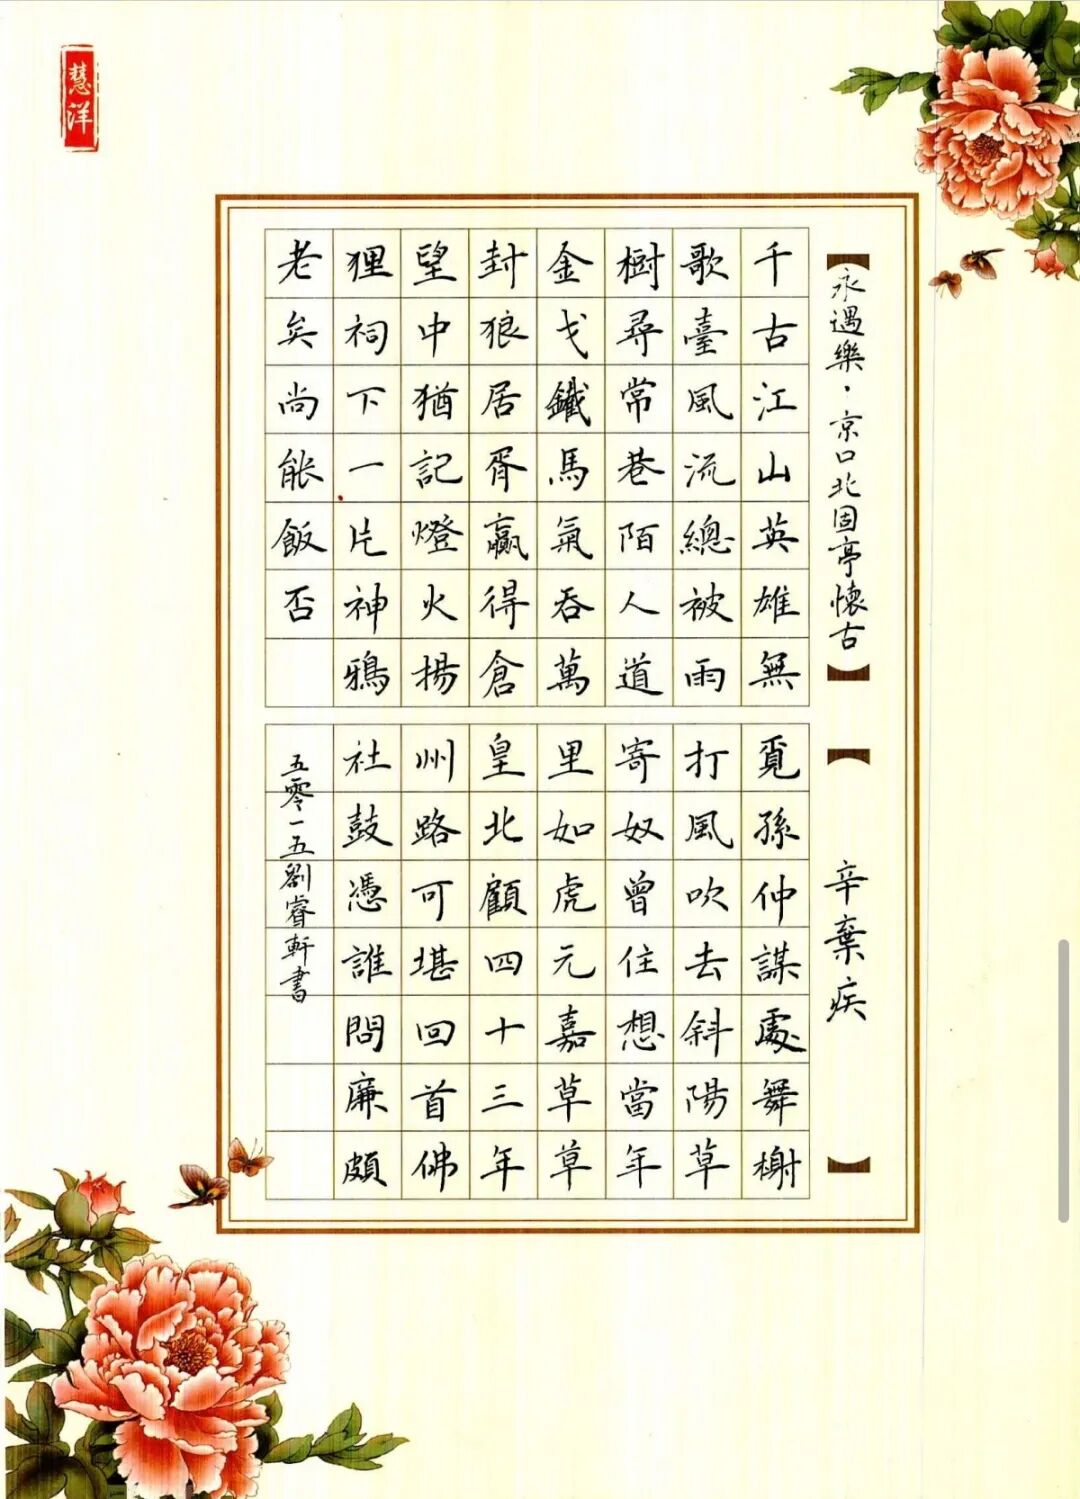 慧洋
【永遇樂·京口北固亭懷古】
【辛棄疾】
千古江山英雄無覓孫仲謀處舞榭
歌臺風流總被雨打風吹去斜陽草
樹尋常巷陌人道寄奴曾住想當年
金戈鐵馬氣吞萬里如虎元嘉草草
封狼居胥贏得倉皇北顧四十三年
望中猶記燈火揚州路可堪回首佛
狸祠下一片神鴉社鼓憑誰問廉頗
老矣尚能飯否
五零一五劉睿軒書